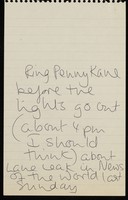 Ring Penny Kane
before the
lights go out
(about 4 pm
I should
think) about
Lane Leak in News
of the World last
Sunday